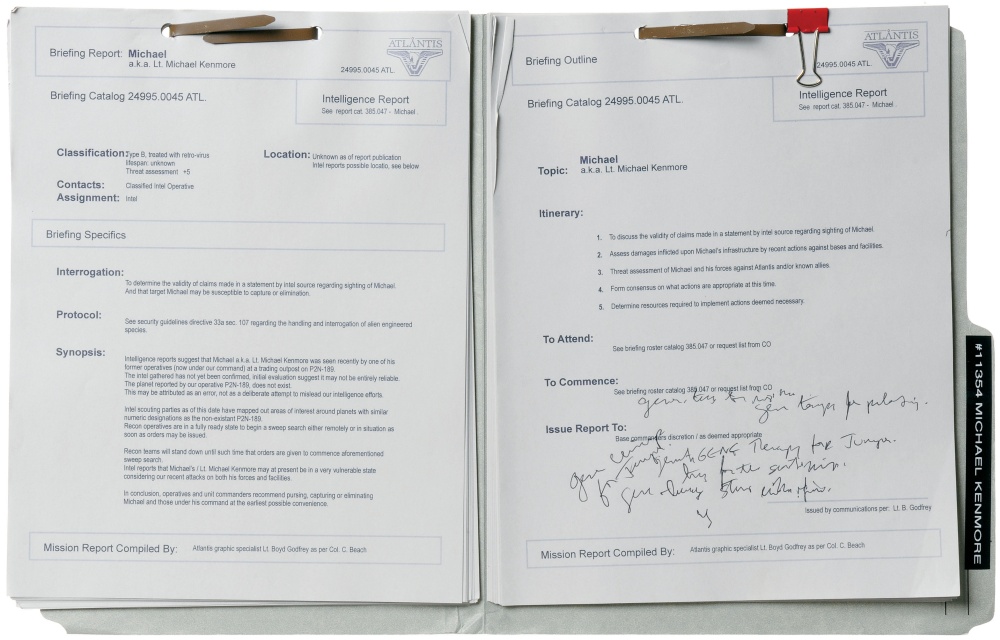 Briefing Report: Michael
a.k.a. Lt. Michael Kenmore
ATLANTIS
24995.0045 ATL.
Briefing Catalog 24995.0045 ATL.
Intelligence Report
See report cat. 385.047 - Michael.
Classification: Type B, treated with retro-virus
lifespan: unknown
Threat assessment +5
Location: Unknown as of report publication
Intel reports possible locatio, see below
Contacts: Classified Intel Operative
Assignment: Intel
Briefing Specifics
Interrogation:
To determine the validity of claims made in a statement by intel source regarding sighting of Michael.
And that target Michael may be susceptible to capture or elimination.
Protocol:
See security guidelines directive 33a sec. 107 regarding the handling and interrogation of alien engineered
species.
Synopsis:
Intelligence reports suggest that Michael a.k.a. Lt. Michael Kenmore was seen recently by one of his
former operatives (now under our command) at a trading outpost on P2N-189.
The intel gathered has not yet been confirmed, initial evaluation suggest it may not be entirely reliable.
The planet reported by our operative P2N-189, does not exist.
This may be attributed as an error, not as a deliberate attempt to mislead our intelligence efforts.
Intel scouting parties as of this date have mapped out areas of interest around planets with similar
numeric designations as the non-existant P2N-189.
Recon operatives are in a fully ready state to begin a sweep search either remotely or in situation as
soon as orders may be issued.
Recon teams will stand down until such time that orders are given to commence aforementioned
sweep search.
Intel reports that Michael's / Lt. Michael Kenmore may at present be in a very vulnerable state
considering our recent attacks on both his forces and facilities.
In conclusion, operatives and unit commanders recommend pursing, capturing or eliminating
Michael and those under his command at the earliest possible convenience.
Mission Report Compiled By: Atlantis graphic specialist Lt. Boyd Godfrey as per Col. C. Beach
Briefing Outline
ATLANTIS
24995.0045 ATL.
Briefing Catalog 24995.0045 ATL.
Intelligence Report
See report cat. 385.047 - Michael.
Topic: Michael
a.k.a. Lt. Michael Kenmore
Itinerary:
1. To discuss the validity of claims made in a statement by intel source regarding sighting of Michael.
2. Assess damages inflicted upon Michael's infrastructure by recent actions against bases and facilities.
3. Threat assessment of Michael and his forces against Atlantis and/or known allies.
4. Form consensus on what actions are appropriate at this time.
5. Determine resources required to implement actions deemed necessary.
To Attend:
See briefing roster catalog 385.047 or request list from CO
To Commence:
See briefing roster catalog 385.047 or request list from CO
Issue Report To:
Base commanders discretion / as deemed appropriate
GENE Therapy for Jumper.
Issued by communications per: Lt. B. Godfrey
Mission Report Compiled By: Atlantis graphic specialist Lt. Boyd Godfrey as per Col. C. Beach
#11354 MICHAEL KENMORE